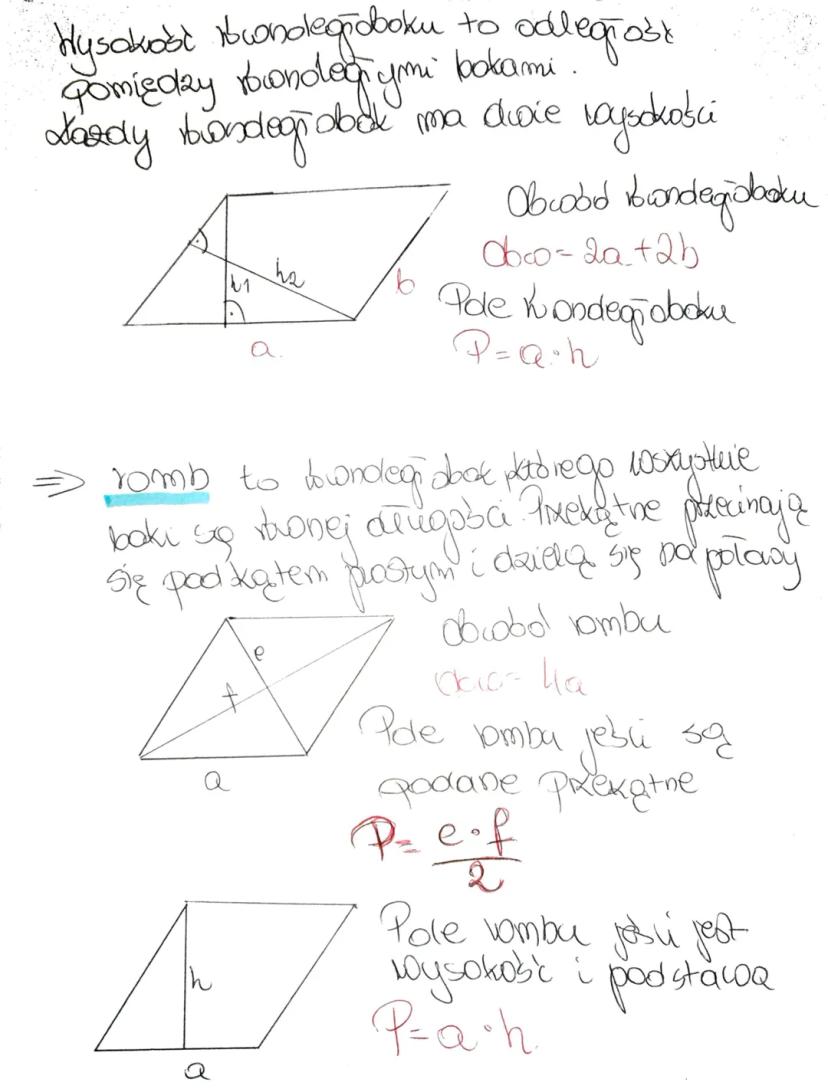 Wysokość równoległoboku to odległość
pomiędzy równoległymi bokami.
Każdy równoległobok ma dwie wysokości
Obwód równoległoboku
obw = 2a + 2b
h1
h2
b
a
Pole równoległoboku
P = a · h
⇒ romb to równoległobok którego wszystkie
boki są równej długości. Przekątne przecinają
się pod kątem prostym i dzielą się na połowy
obwód rombu
e
f
a
obw = 4a
Pole rombu jeśli są
podane przekątne
P = e · f / 2
Pole rombu jeśli jest
wysokość i podstawa
h
a
P = a · h